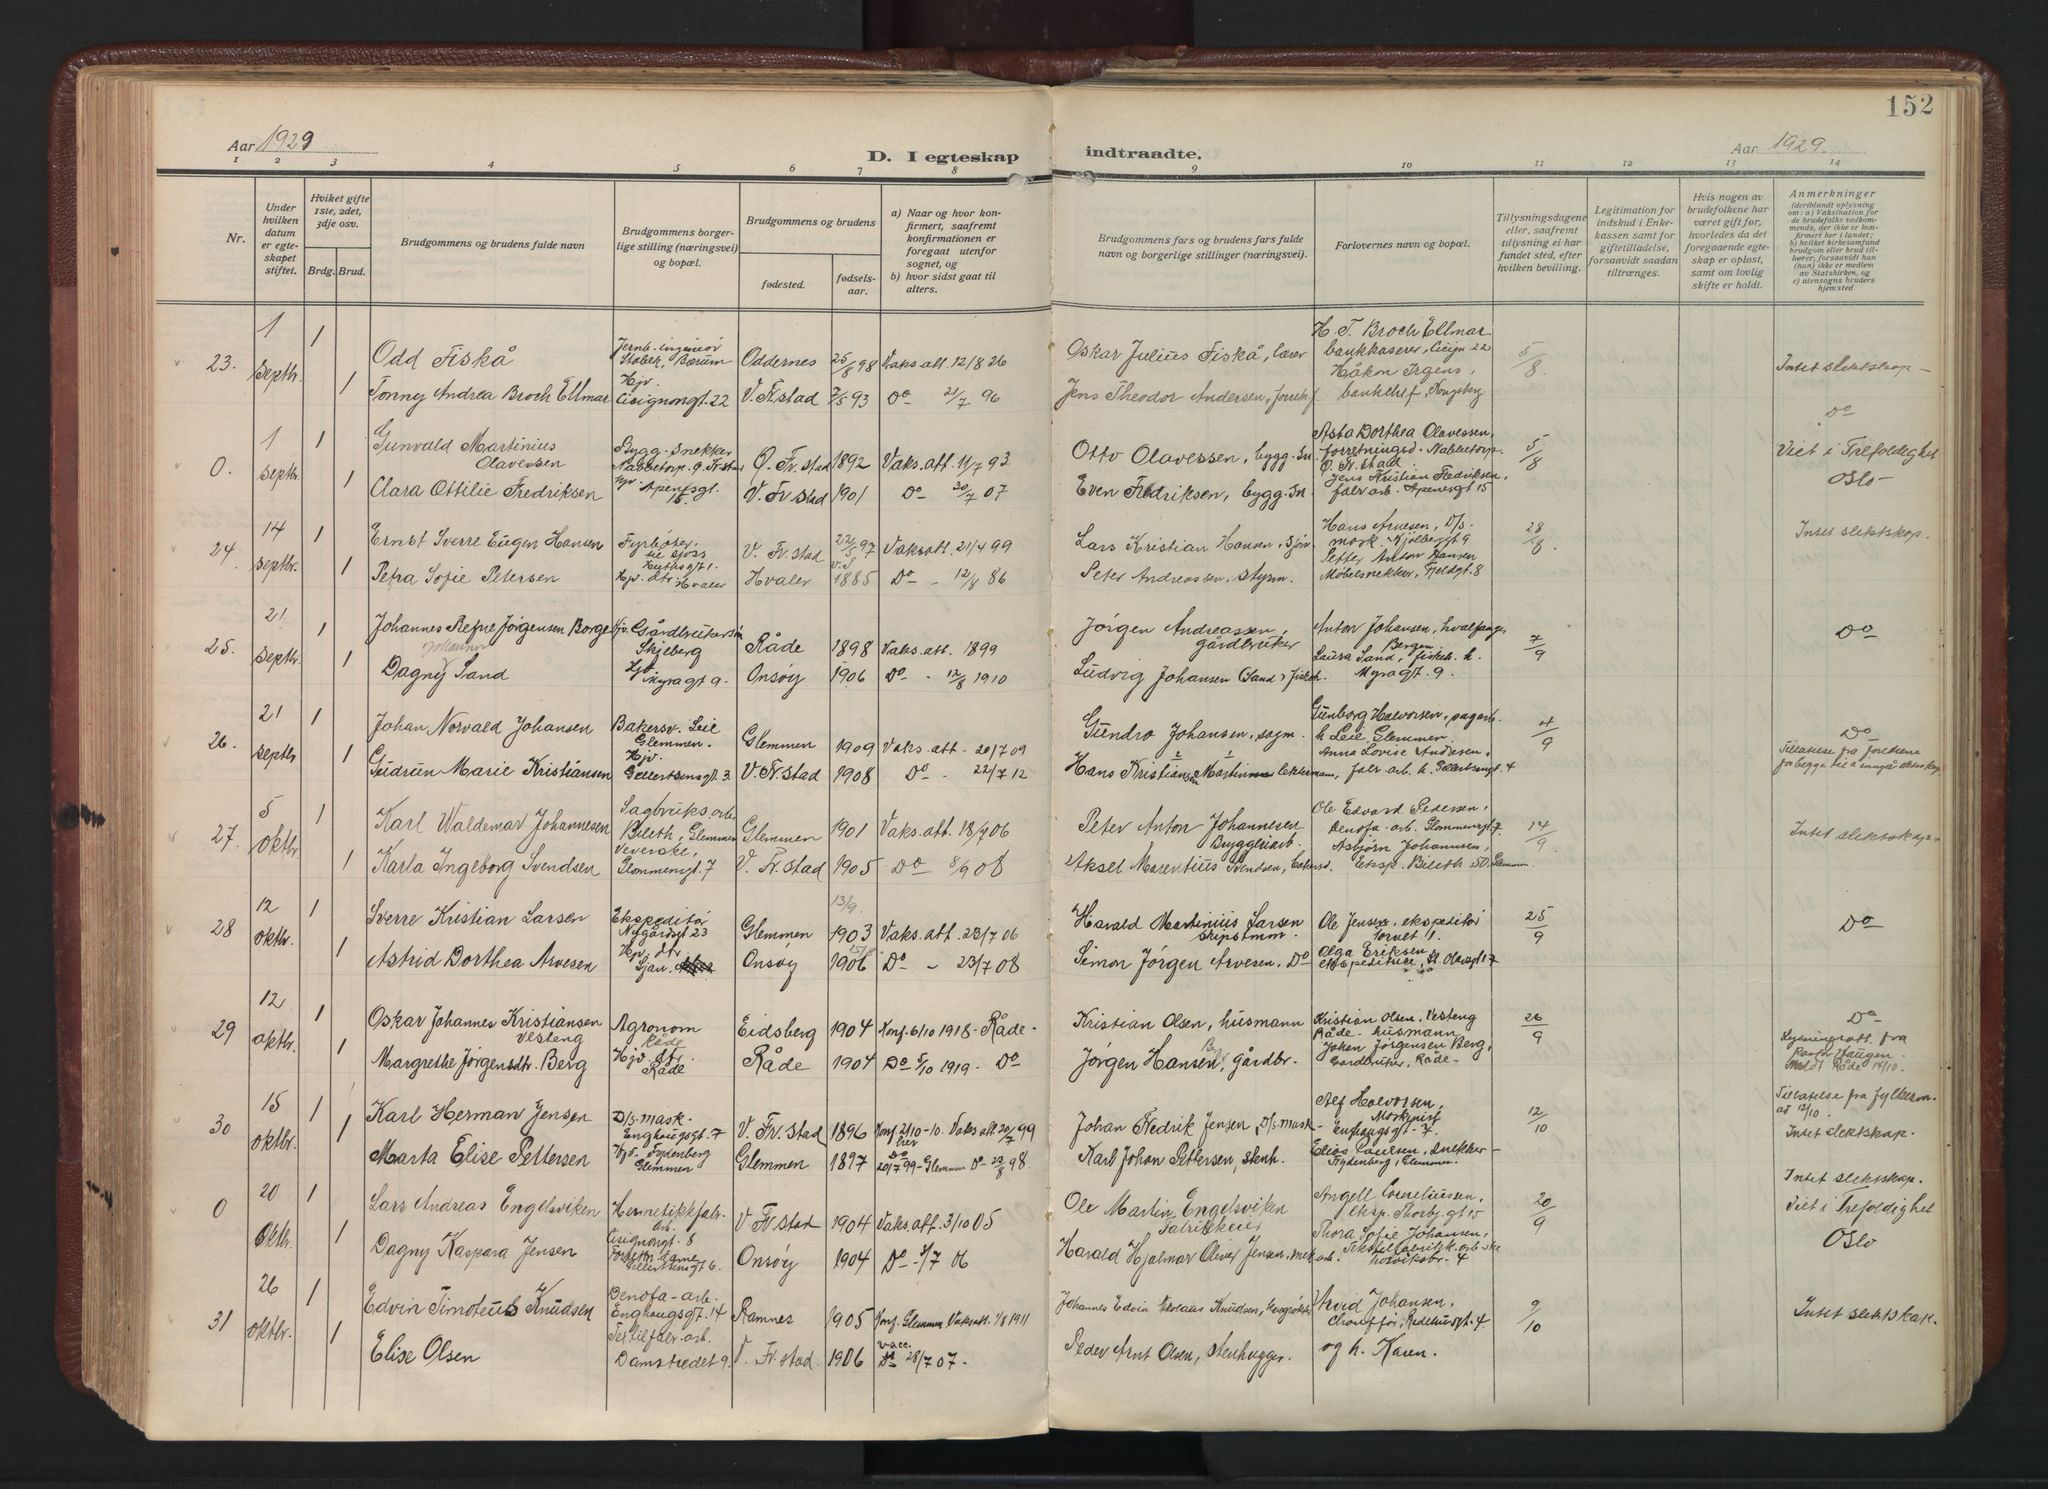 152
Aar 1929
D. I egteskap
indtraadte.
Aar 1929.
1 2 3 4 5 6 7 8 9 10 11 12 13 14
Nr.
Under hvilken datum er egteskapet stiftet.
Hviket gifte 1ste, 2det, 3dje osv.
Brdg. Brud.
Brudgommens og brudens fulde navn
Brudgommens borgerlige stilling (næringsvei) og bopæl.
Brudgommens og brudens
fødested.
fødselsaar.
a) Naar og hvor konfirmert, saafremt konfirmationen er foregaat utenfor sognet, og
b) hvor sidst gaat til alters.
Brudgommens fars og brudens fars fulde navn og borgerlige stillinger (næringsvei).
Forlovernes navn og bopæl.
Tillysningsdagene eller, saafremt tillysning ei har fundet sted, efter hvilken bevilling.
Legitimation for indskud i Enkekassen samt for giftetilladelse, forsaavidt saadan tiltrænges.
Hvis nogen av brudefolkene har været gift før, hvorledes da det foregaaende egteskap er opløst, samt om lovlig skifte er holdt.
Anmerkninger
(deriblandt oplysning om: a) Vaksination for de brudefolks vedkommende, der ikke er konfirmert her i landet; b) hvilket kirkesamfund brudgom eller brud tilhører, forsaavidt han (hun) ikke er medlem av Statskirken, og c) utensogns bruders hjemsted
23. 1 septbr. 1
Odd Fiskå
Jernb. ingeniør Stabek, Bærum
Oddernes 25/8 98 Vaks. att. 12/8 26
Oskar Julius Fiskå, lærer
H. T. Broch Ellmar bankkaserer, Cicign 22
5/8
Intet slektskap -
1 Tonny Andrea Broch Ellmar
Hjv. Cicignongt. 22
V. Fr.stad 7/5 93 Do 21/7 96
Jens Theodor Andersen,
Håkon Irgens, bankchef, Kongsberg
Do
0. 1 septbr. 1
Gunvald Martinius Olavessen
Bygg. snekker Nabbetorp. Ø. Fr.stad
Ø. Fr.stad 1892 Vaks. att. 11/7 93
Otto Olavessen, bygg. sn.
Asta Dorthea Olavessen, forretningsd. Nabbetorp. Ø. Fr.stad
5/8
Viet i Trefoldighet
Oslo -
1 Clara Ottilie Fredriksen
Hjv. Apenesgt. 15
V. Fr.stad 1901 Do 30/7 07
Even Fredriksen, bygg. sn.
Jens Kristian Fredriksen, fabr. arb. Apenesgt 15
24 14 septbr. 1
Ernst Sverre Eugen Hansen
Fyrbøter til sjøss
V. Fr.stad 22/5 97 Vaks att 21/4 99
Lars Kristian Hansen, sjøm.
Hans Arvesen, D/s. mask. Kjølbergt 9
28/8
Intet slektskap.
1 Petra Sofie Petersen
Hjv. dtr. Hvaler
Hvaler 1885 Do - 12/8 86
Peter Andreassen, styrm.
Petter Anton Hansen Møbelsnekker, Fjeldgt. 8
25. 21 septbr. 1
Johannes Refne Jørgensen Borge
Gårdbrukersøn Skjeberg
Råde 1898 Vaks. att. 1899
Jørgen Andreassen, gårdbruker
Anton Johansen, hvalfang. Bergen
7/9
Do
Johanne
1 Dagny Sand
Hjv. Myragt 9.
Onsøy 1906 Do - 12/8 1910
Ludvig Johansen Sand, fiskeh.
Laura Sand, fiskeh. h. Myragt. 9.
26. 21 septbr 1
Johan Norvald Johansen
Bakersv. Leie Glemmen.
Glemmen 1909 Vaks. att. - 20/7 09
Gundro Johansen, sagm.
Gunborg Halvorsen, sagarb. h Leie Glemmen.
4/9
Do
Tillatelse fra foreldrene for begge til å inngå ekteskap
1 Gudrun Marie Kristiansen
Hjv. Gellertsensgt. 3
V. Fr.stad 1908 Do - 22/7 12
Hans Kristiansen Martin
Anna Lovise Andersen, fabr. arb. h. Gellertsensgt. 4
27. 5 oktbr. 1
Karl Waldemar Johannesen
Sagbruks. arb. Bileth, Glemmen
Glemmen 1901 Vaks. att. 18/7 06
Peter Anton Johannesen Bryggeriarb.
Ole Edvard Pedersen, Denofa - arb. Glommengt. 7.
14/9
Intet slektskap -
1 Karla Ingeborg Svendsen
Veverske, Glommengt. 7
V. Fr.stad 1905 Do 8/9 08
Aksel Marentius Svendsen,
Asbjørn Johannsen, Eksp. Bileth 50. Glemmen
28 12 oktbr. 1
Sverre Kristian Larsen
Ekspeditør Nygårdsgt 23
Glemmen 13/9. 1903 Vaks. att. 23/7 06
Harald Martinius Larsen skipstmm.
Ole Jensen, ekspeditør Torvet 11.
25/9
Do
1 Astrid Dorthea Arvesen
Hjv. dtr
Onsøy 1906 Do - 23/7 08
Simon Jørgen Arvesen. Do
Olga Eriksen ekspeditrice, St. Olavsgt 17
29 12 oktbr. 1
Oskar Johannes Kristiansen Vesteng
Agronom Råde
Eidsberg 1904 Konf. 6/10 1918 - Råde -
Kristian Olsen, husmann
Kristian Olsen, Vesteng Råde - husmann
26/9
Do
Lysningsatt. fra Pastor Haugen
Råde 14/10.
1 Margrethe Jørgensdtr. Berg
Hjv. dtr. Råde
Råde 1904 Do 5/10 1919. Do
Jørgen Hansen Berg, gårdbr.
Johan Jørgensen Berg, Gardbruker, Råde -
30 15 oktbr. 1 1
Karl Herman Jensen
D/s. mask. Enghaugsgt. 7
V. Fr.stad 1896 Konf 2/10 - 10. Vaks att 20/7 99
her
Johan Fredrik Jensen, D/s. mask -
Alf Halvorsen, Maskinist Enghaugsgt - 7.
12/10
Tillatelse fra fylkesm. av 12/10.
Intet slektskap.
Marta Elise Pettersen
Hjv. Frydenberg Glemmen
Glemmen 1897 Do 20/7 99 - Glemmen Do - 22/8 98
Karl Johan Pettersen, stenh.
Elias Paulsen, snekker - Frydenberg, Glemmen.
0 20 oktbr. 1
Lars Andreas Engelsviken
Hermetikkfabr. arb. Cicignongt. 8
V. Fr.stad 1904 Vaks. att. 3/10 05
Ole Martin Engelsviken Fabrikkeier
Angell Corneliussen, eksp. Thorbj. gt 15
20/9
Intet slektskap.
Viet i Trefoldighet
Oslo
1 Dagny Kaspara Jensen
Gellertsensgt 6.
Onsøy 1904 Do - 3/7 06
Harald Hjalmar Oliver Jensen, mek. arb.
Thora Sofie Johansen, Tekstilfabrikk - arb - ske
31 26 oktbr. 1
Edvin Timoteus Knudsen
Denofa - arb. Enghaugsgt. 14
Ramnes 1905 Konf. Glemmen Vaks att. 1/8 1911
Johannes Edvin Nikolaus Knudsen,
Arvid Johansen, Chauffør, Redehusgt. 4.
9/10
Intet slektskap.
1 Elise Olsen
Textilfabr. arb. Damstredet 9.
V. Fr.stad. 1906 vacc. Do 28/7 07.
Peder Arnt Olsen, stenhugger.
og h. Karen.